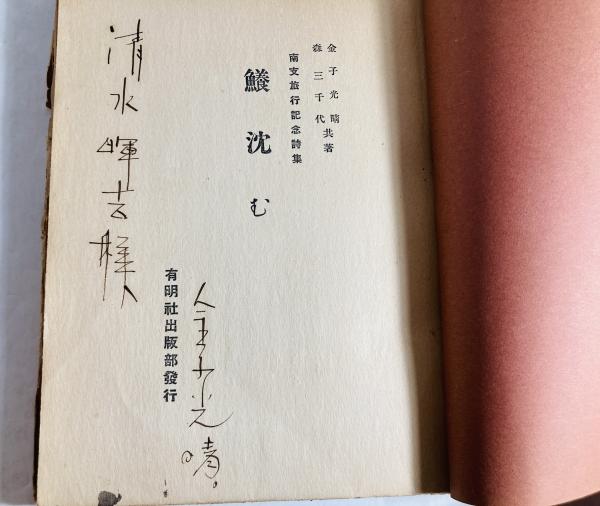 金子光晴
森三千代共著
南支旅行記念詩集
鱶沈む
有明社出版部發行
清水暉吉様
金子光晴。